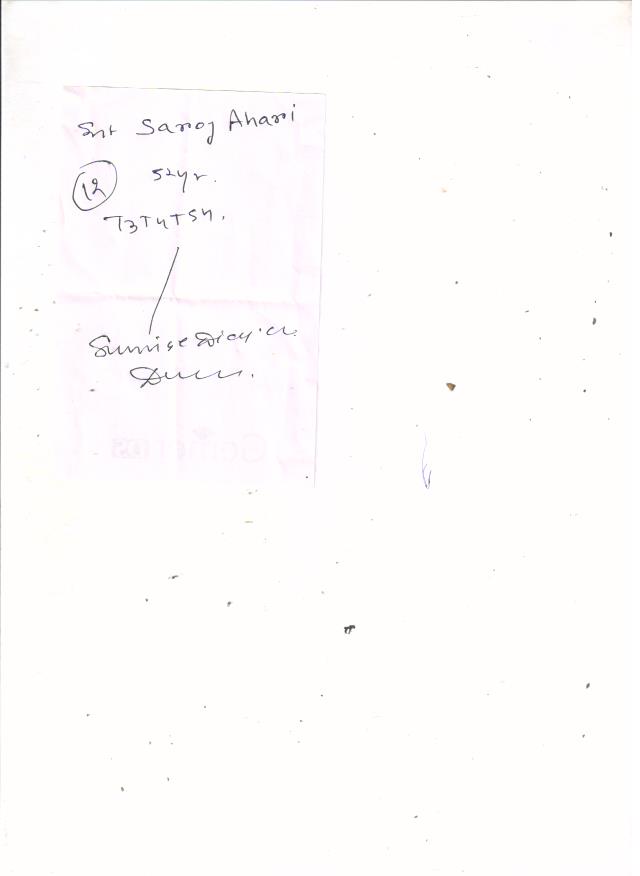 Smt Saroj Ahari
12
52yr.
T3T4TSH.
Sunrise